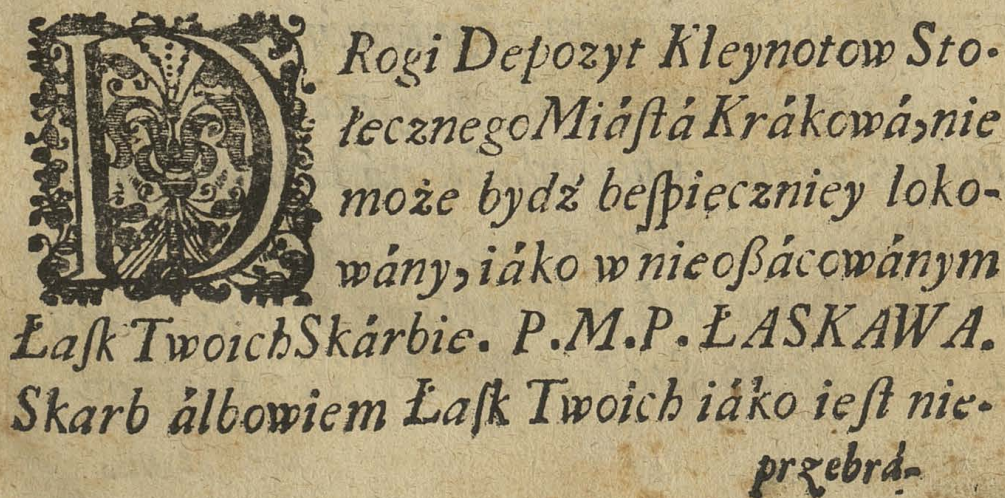 DRogi Depozyt Kleynotow Sto-
łecznego Miáſtá Krákowá, nie
może bydź beſpięczniey loko-
wány, iáko w nieoßácowánym
Łaſk Twoich Skárbie. P.M.P. ŁASKAWA.
Skarb álbowiem Łaſk Twoich iáko ieſt nie-
przebrá-